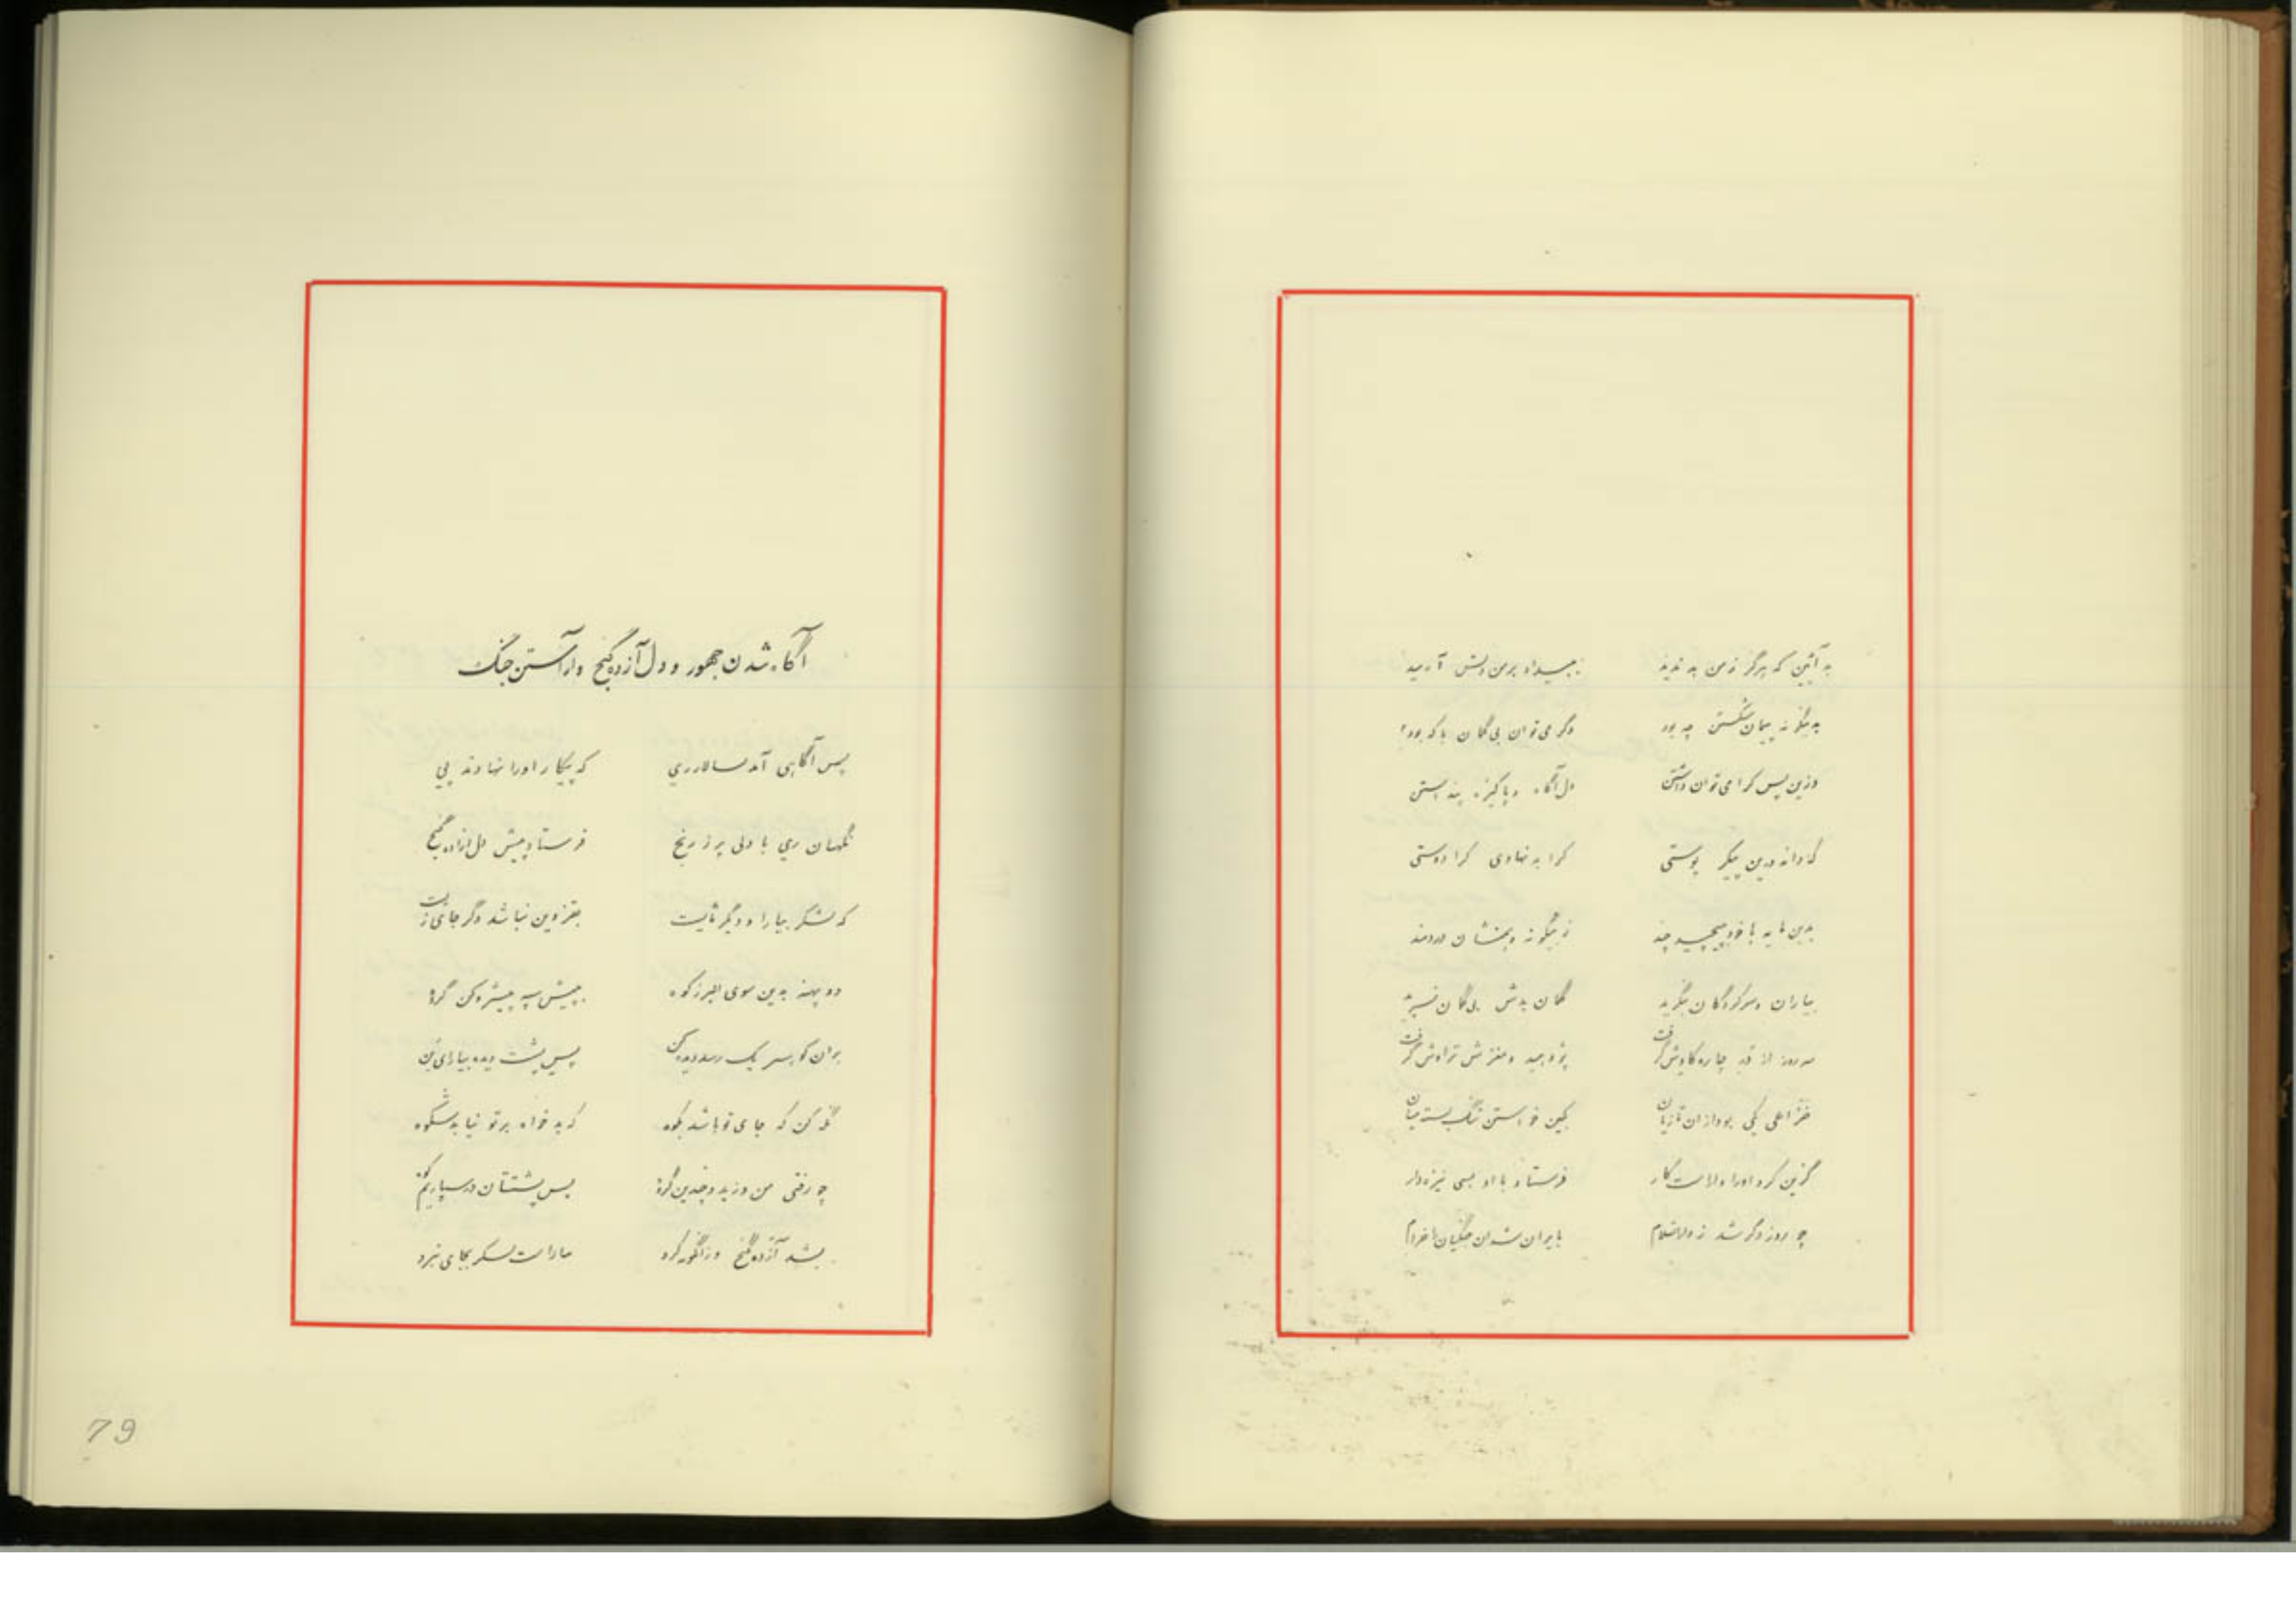 به آیین که هرگز ز من بد ندید ببیداد بر من دلش آرمید
به نیگونه پیمان شکستن چه بود دگر می توان بی گمان با که بود؟
وزین پس کرا می توان داشتن دل آگاه و پاکیزه پنداشتن
که داند درین پیکر پوستی کرا بد نهادی کرا دوستی
بدین مایه با خود پیچید چند
بیاران و سرکردگان ننگرید گمان بدش بی گمان
سه روز از چاره کاوش گرفت پژوهید و مغزش تراوش گرفت
خزاعلی یکی بود از آن تازیان بکین خواستن تنگ بسته میان
گزین کرد او را والاست کار فرستاد با او بسی نیزه دار
چو روز دگر شد بایران شدن جنگیان
آگاه شدن جهور و دل آزده گنج و آراستن جنگ
پس آگاهی آمد سالار ری که پیکار او را نهادند پی
نگهبان ری با دلی پر ز رنج فرستاد پیش دل ازاده گنج
که لشکر بیارا و دیگر مایست بقزوین نباشد دگر جای زیست
دو پهنه بدین سوی البرز کوه بپیش سپه پیشرو کن گروه
بر آن کو بسر یک رسد دیده کن پس پشت دیده بیارای تن
نگه کن که جای تو باشد بکوه که بدخواه بر تو نیابد شکوه
چو رفتی من و زید و چندین گروه پس پشتتان در سپاریم کوه
بشد آزده گنج وزانگونه کرد بیاراست لشکر بجای نبرد
79